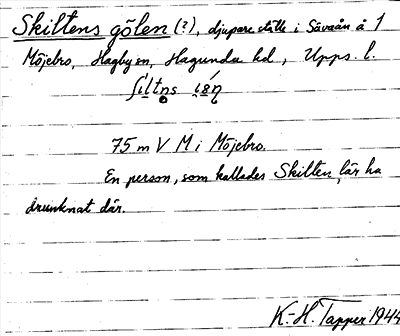 Skiltens gölen (?), djupare ställe i Sävaån å 1
Möjebro, Hagby sn, Hagunda hd, Upps. l.
75 m V M i Möjebro.
En person, som kallades Skilten, lär ha
drunknat där.
K.-H. Tapper 1944